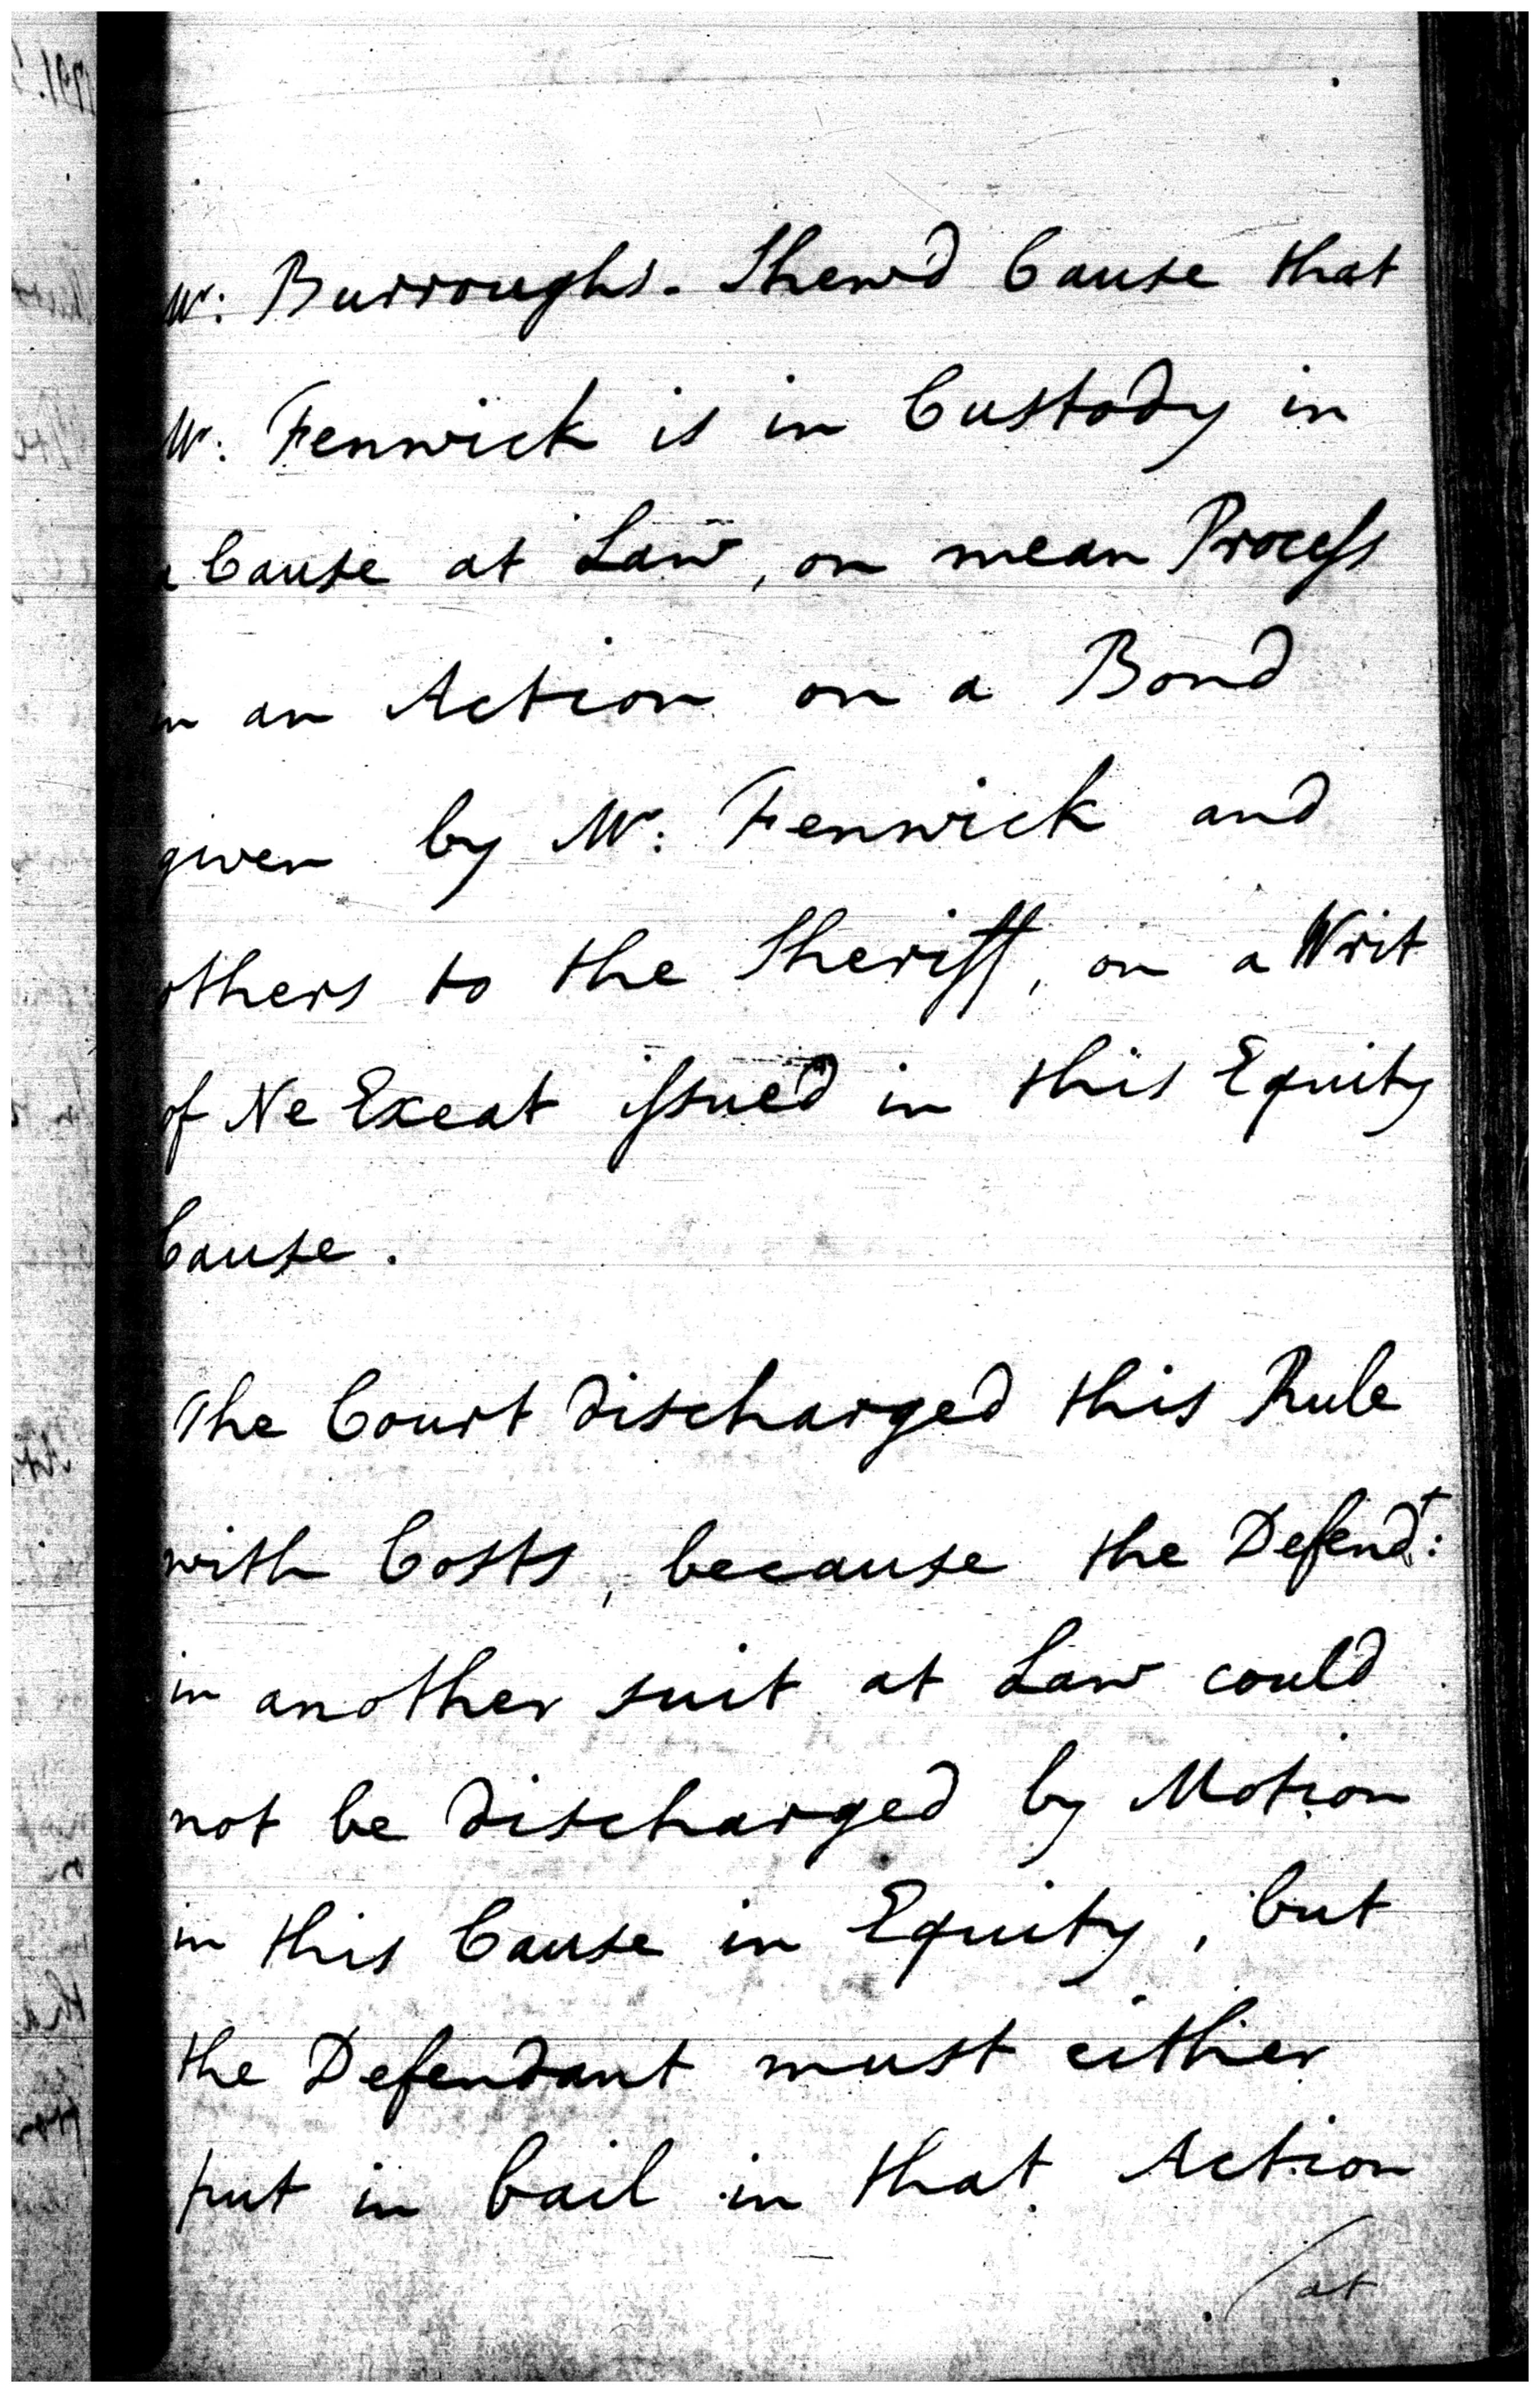 Mr: Burroughs. Shew'd Cause that
Mr: Fenwick is in Custody in
a Cause at Law, on mean Process
in an Action on a Bond
given by Mr: Fenwick and
others to the Sheriff, on a Writ
of Ne Exeat issued in this Equity
Cause.
The Court discharged this Rule
with Costs, because the Defendt:
in another suit at Law could
not be discharged by Motion
in this Cause in Equity, but
the Defendant must either
put in bail in that Action
/at